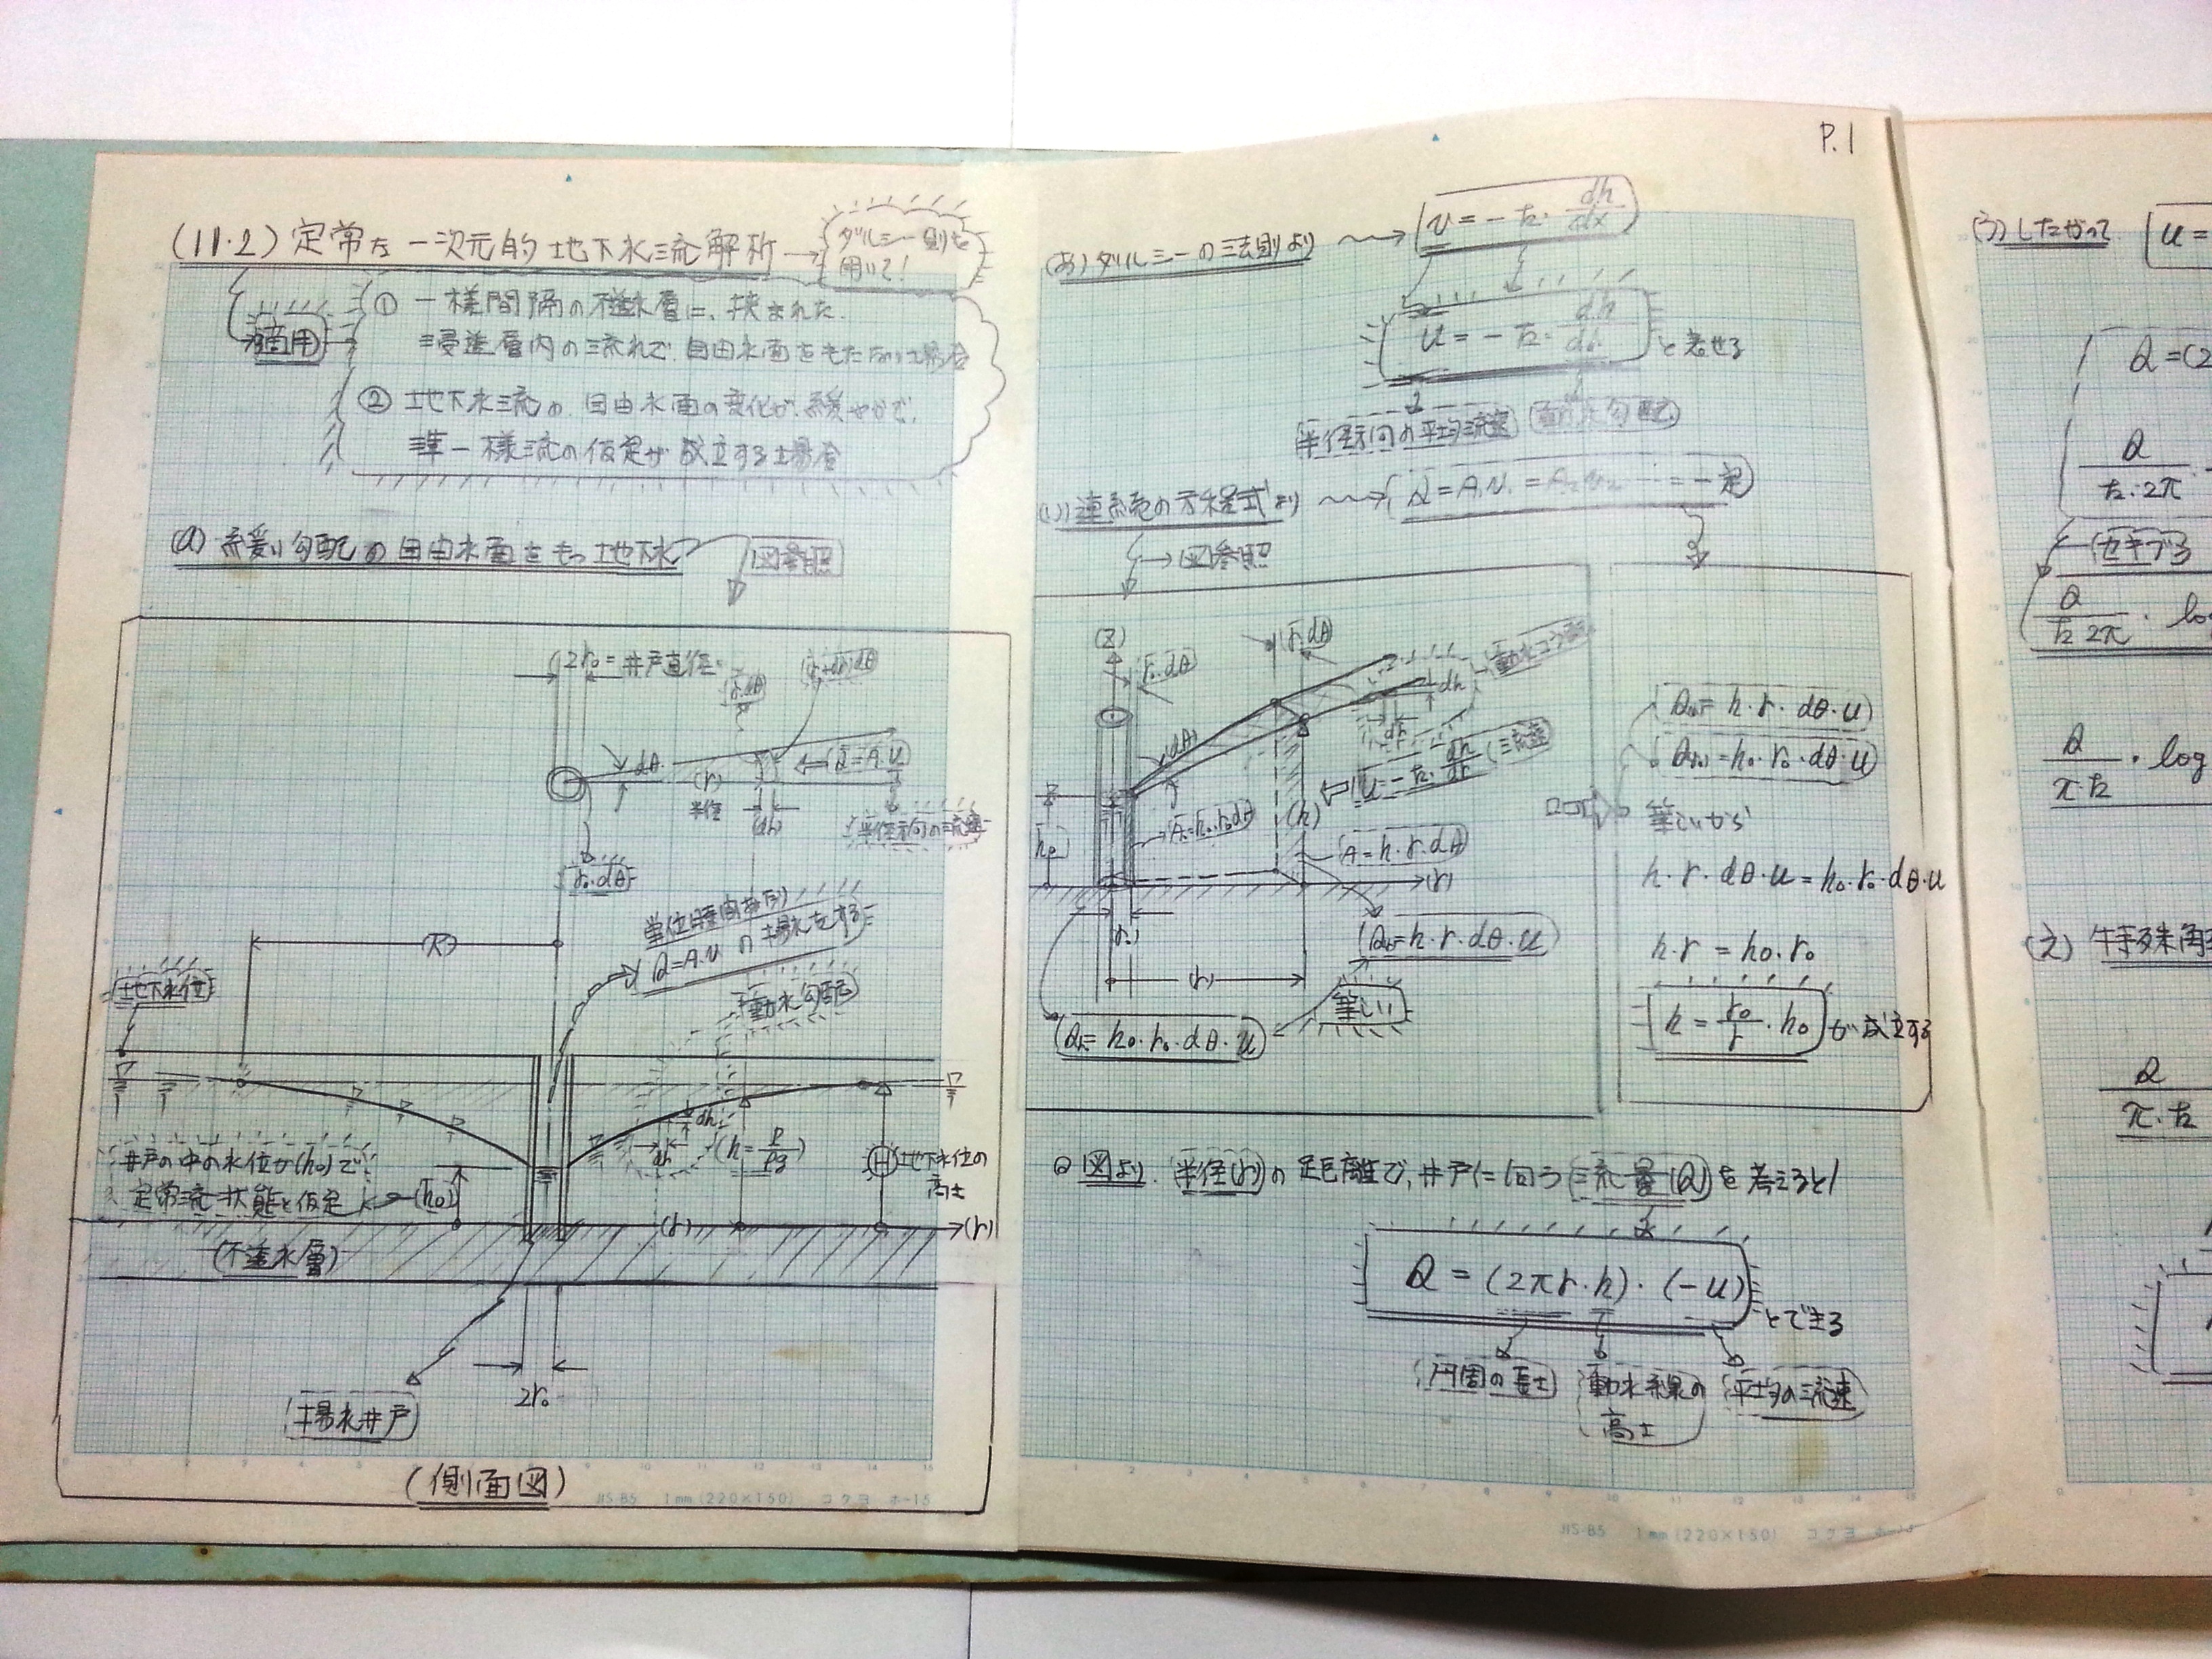 (11・2) 定常な一次元的地下水流解析 → ダルシー則を用いて!
適用
① 一様間隔の不透水層に、挟まれた
浸透層内の流れで、自由水面をもたない場合
② 地下水流の、自由水面の変化が、緩やかで、
準一様流の仮定が成立する場合
(a) 緩い勾配の自由水面をもつ地下水
図参照
2r₀=井戸直径
r・dθ
(r+dr)dθ
dθ
(r)
半径
(dr)
Q=A・u
半径方向の流速
r₀・dθ
(R)
単位時間当り
Q=A・u の揚水をする
地下水位
動水勾配
dh
dr
(h=P/ρg)
(H) 地下水位の
高さ
井戸の中の水位が(h₀)で
定常流状態と仮定
(h₀)
(r)
(r)
(不透水層)
2r₀
揚水井戸
(側面図)
JIS・B5 1mm(220×150) コクヨ ホ-15
P.1
(あ) ダルシーの法則より
v=-k・dh/dx
u=-k・dh/dr と表せる
半径方向の平均流速
動水勾配
(い) 連続の方程式より
Q=A₁v₁=A₂v₂……=一定
図参照
(Z)
r₀・dθ
r・dθ
動水コウ配
dh
dr
(dθ)
u=-k・dh/dr (流速)
h₀
A₀=h₀・r₀dθ
(h)
A=h・r・dθ
(r)
(r₀)
(r)
Q(r)=h・r・dθ・u
等しい
Q₀=h₀・r₀・dθ・u
Q(r)=h・r・dθ・u
Q(r₀)=h₀・r₀・dθ・u
等しいから
h・r・dθ・u=h₀・r₀・dθ・u
h・r=h₀・r₀
h=r₀/r・h₀ が成立する
図より、半径(r)の距離で、井戸に向う流量(Q)を考えると
Q=(2πr・h)・(-u) とできる
円周の長さ
動水線の
高さ
平均の流速
JIS・B5 1mm(220×150) コクヨ ホ-15
(う) したがって
u=
Q=(2
Q/k・2π・
セキブン
Q/k2π・lo
Q/π・k・log
(え) 特殊解
Q/π・k